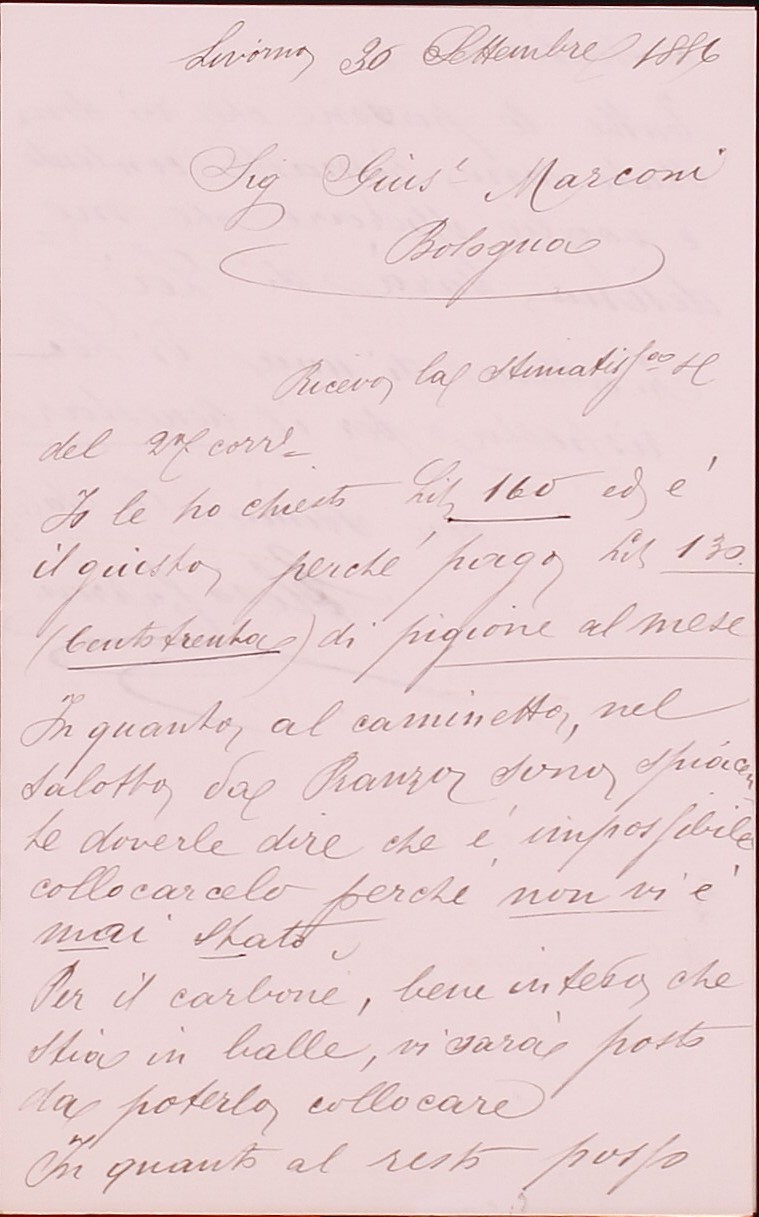 Livorno 30 Settembre 1886
Sig Gius.e Marconi
Bologna
Ricevo la stimatiss.
del 27 corr.e
Io le ho chiesto Lit 160 ed é
il giusto, perché pago Lit 130
(Centotrenta) di pigione al mese
In quanto al caminetto, nel
salotto da Pranzo sono spiacen
te doverle dire che é impossibile
collocarcelo perché non vi é
mai stato
Per il carbone, bene inteso che
stia in balle, vi sará posto
da poterlo collocare
In quanto al resto posso